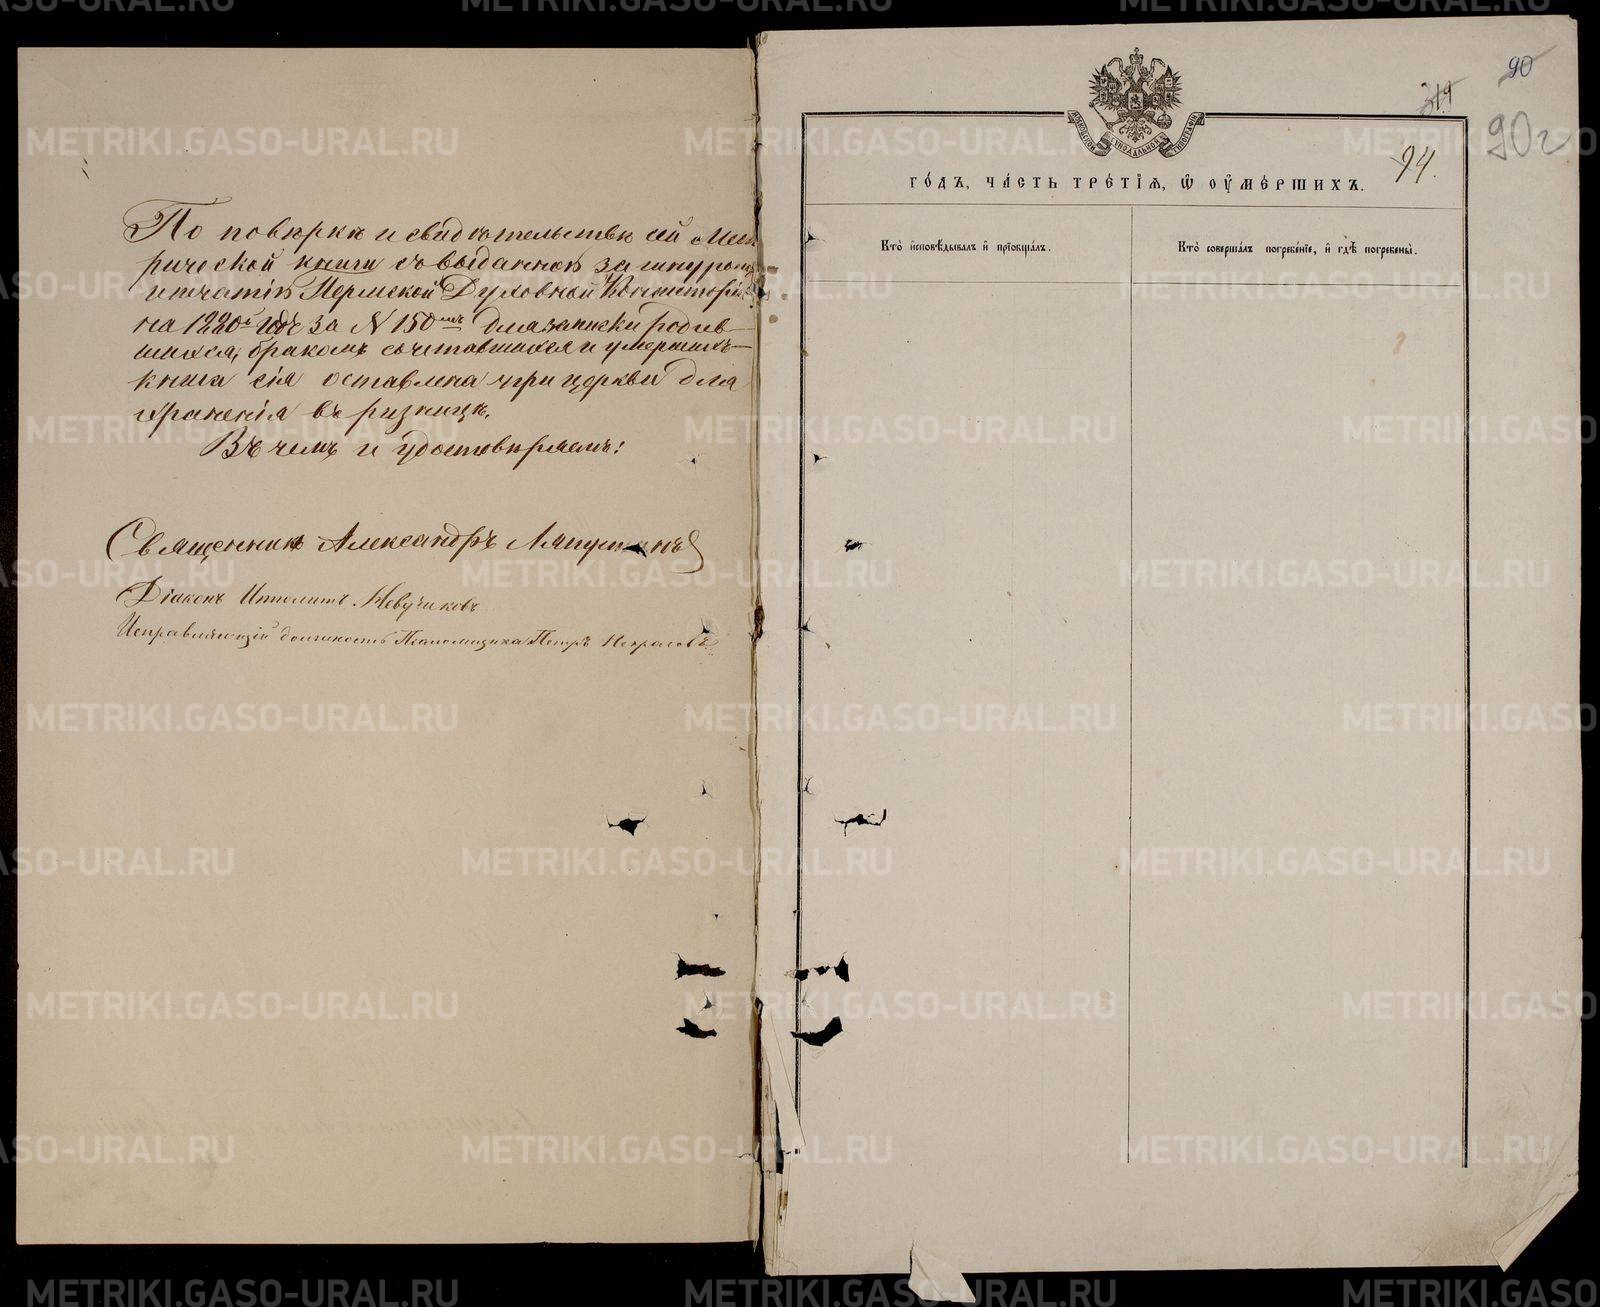 По повѣркѣ и свидѣтельствѣ сей Мет
рической книги съ выданной за шнуромъ
и печатію Пермской Духовной Консисторіи
на 1880й годъ за N 150мъ для записки родив
шихся, бракомъ сочетавшихся и умершихъ
книга сія оставлена при церкви для
храненія въ ризницѣ.
Въ чемъ и удостовѣряемъ:
Священникъ Александръ
Діаконъ Ипполитъ Невучиковъ
Исправляющій должность Псаломщика Петръ Некрасовъ
90
319
90г
94.
МОСКОВСКОЙ СѴНОДАЛЬНОЙ ТИПОГРАФІИ
ГО́ДЪ, ЧА́СТЬ ТРЕ́ТІѦ, Ѡ҆ ОУ҆МЕ́РШИХЪ.
Кто̀ и҆сповѣ́дывалъ и҆ прїѡбща́лъ.
Кто̀ соверша́лъ погребе́нїе, и҆ гдѣ̀ погребены̀.
METRIKI.GASO-URAL.RU